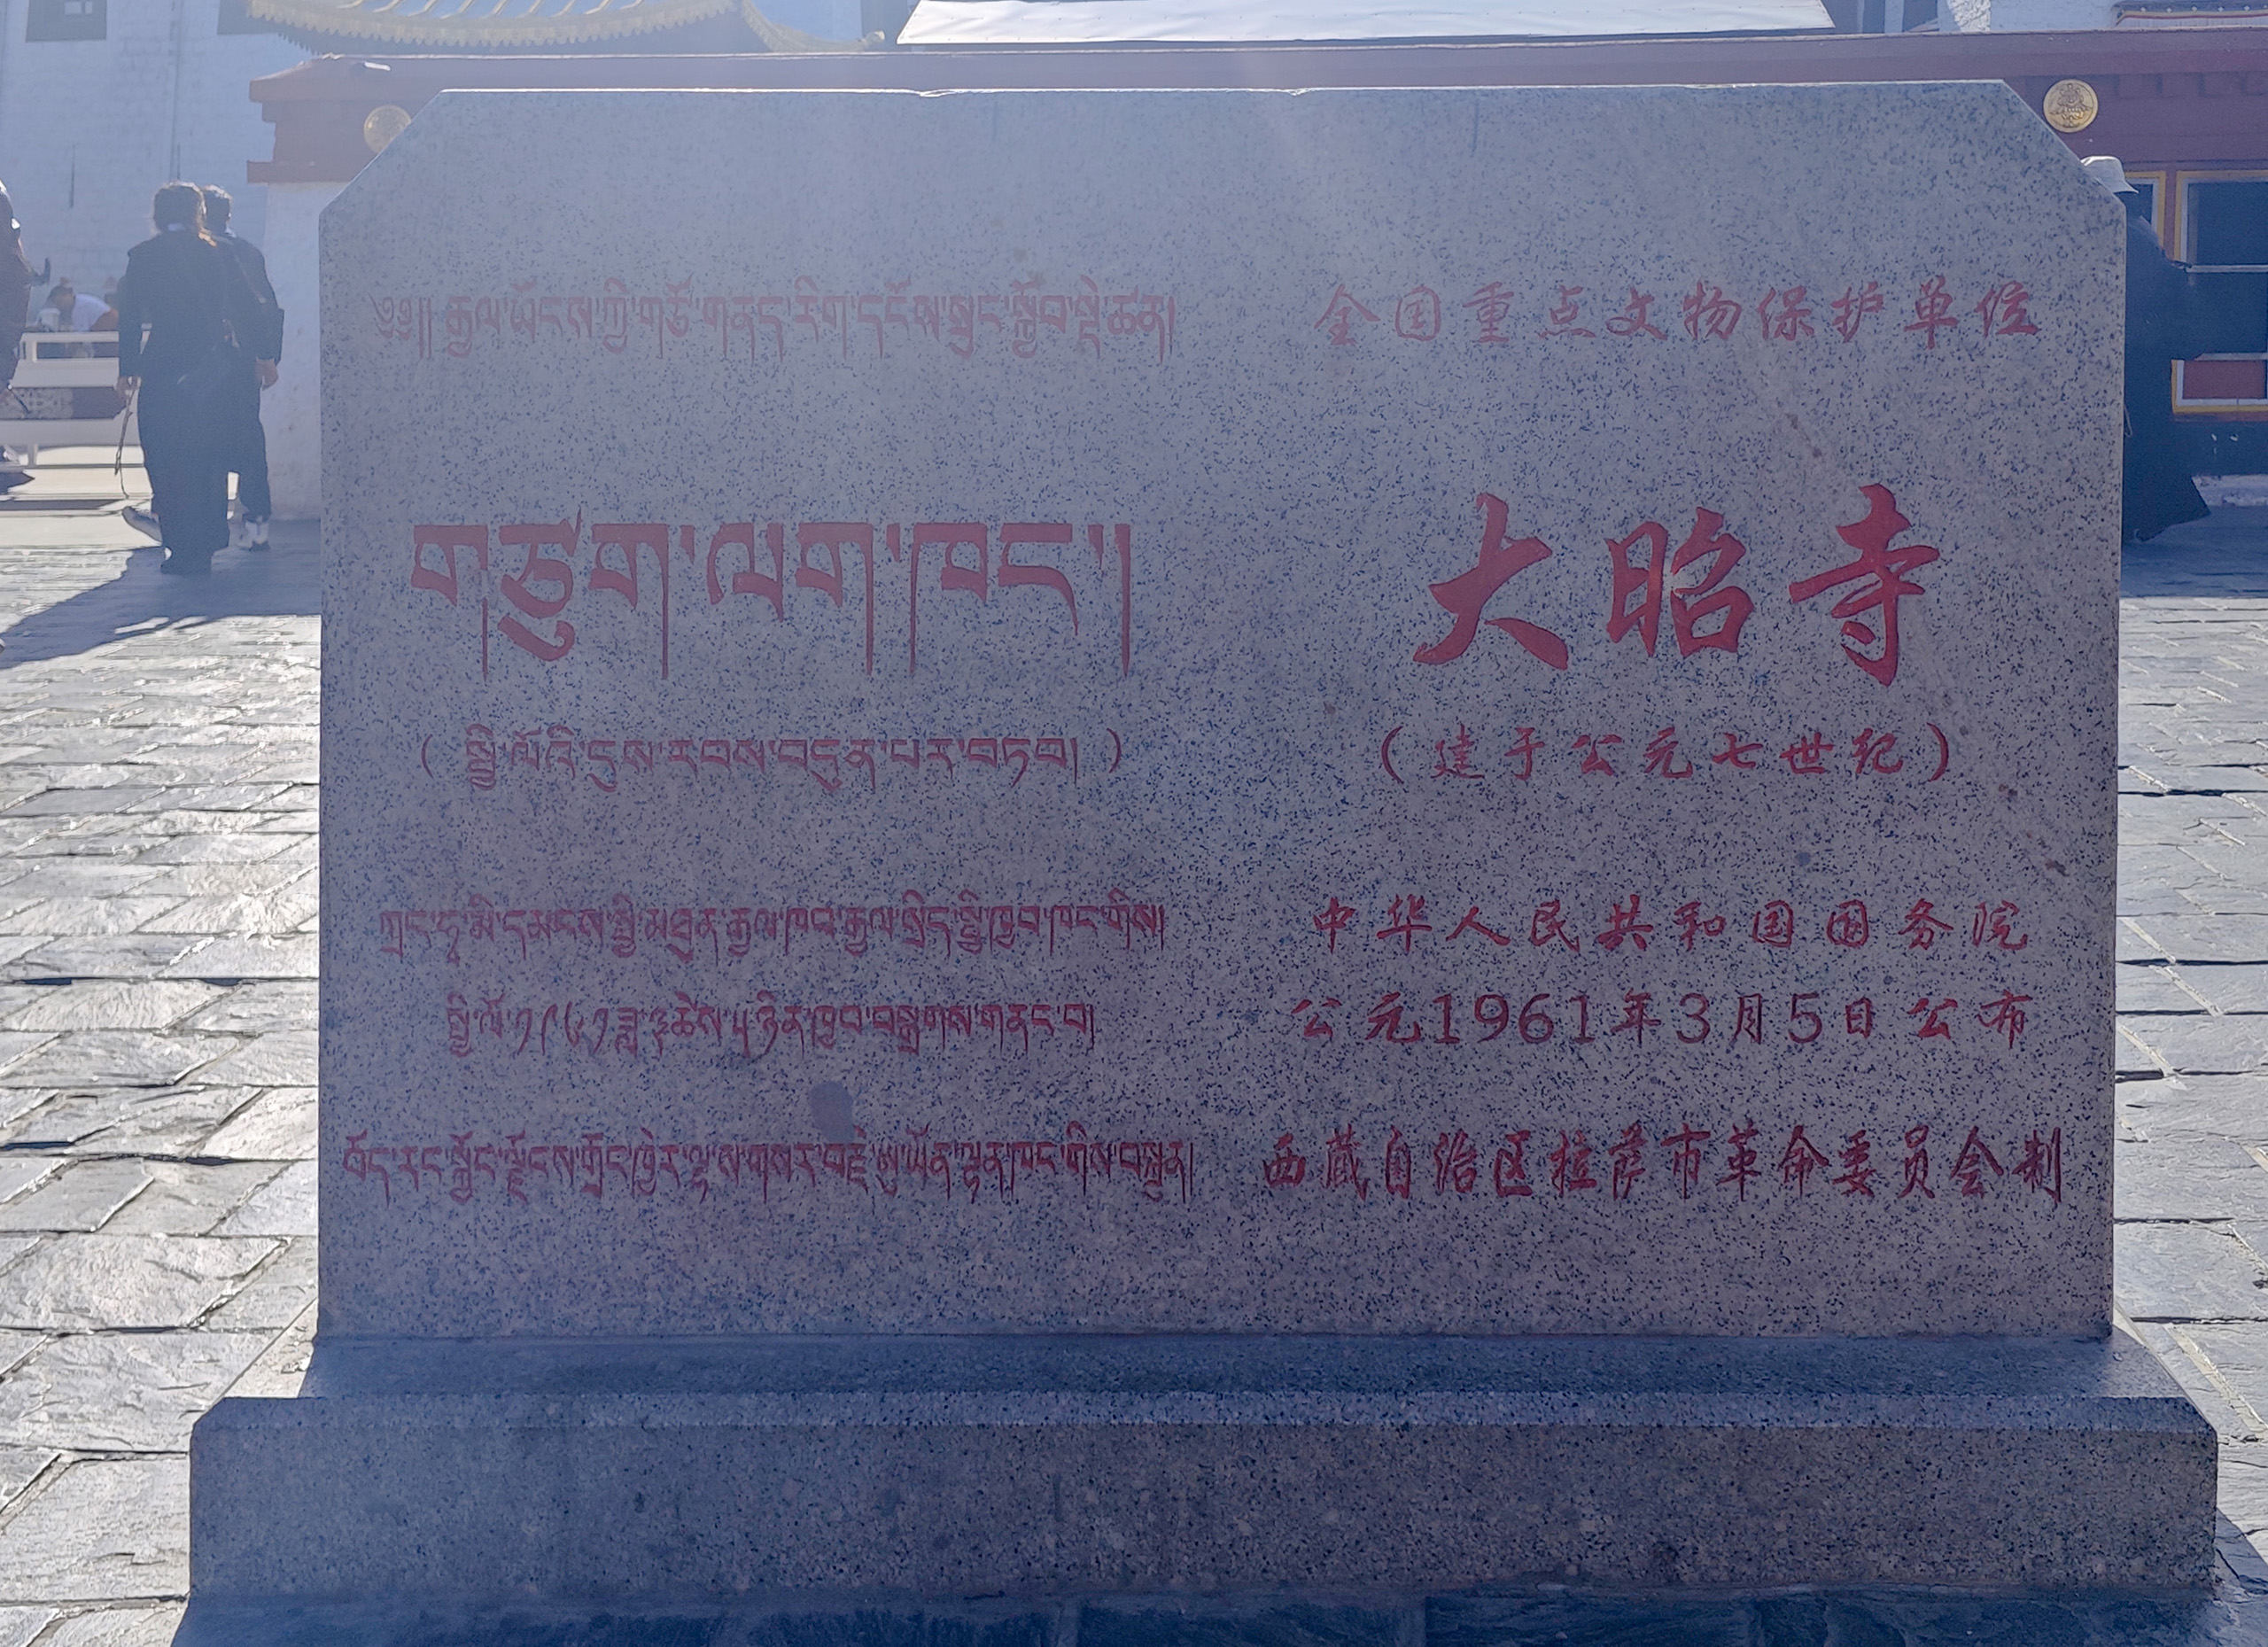 ༄༅།། རྒྱལ་ཡོངས་ཀྱི་གཙོ་གནད་རིག་དངོས་སྲུང་སྐྱོབ་སྡེ་ཚན།
全国重点文物保护单位
གཙུག་ལག་ཁང་།
大昭寺
( སྤྱི་ལོའི་དུས་རབས་བདུན་པར་བཏབ། )
(建于公元七世纪)
ཀྲུང་ཧྭ་མི་དམངས་སྤྱི་མཐུན་རྒྱལ་ཁབ་རྒྱལ་སྲིད་སྤྱི་ཁྱབ་ཁང་གིས།
中华人民共和国国务院
སྤྱི་ལོ་༡༩༦༡ཟླ་༣ཚེས་༥ཉིན་ཁྱབ་བསྒྲགས་གནང་བ།
公元1961年3月5日公布
བོད་རང་སྐྱོང་ལྗོངས་གྲོང་ཁྱེར་ལྷ་ས་གསར་བརྗེ་ཨུ་ཡོན་ལྷན་ཁང་གིས་བསྐྲུན།
西藏自治区拉萨市革命委员会制